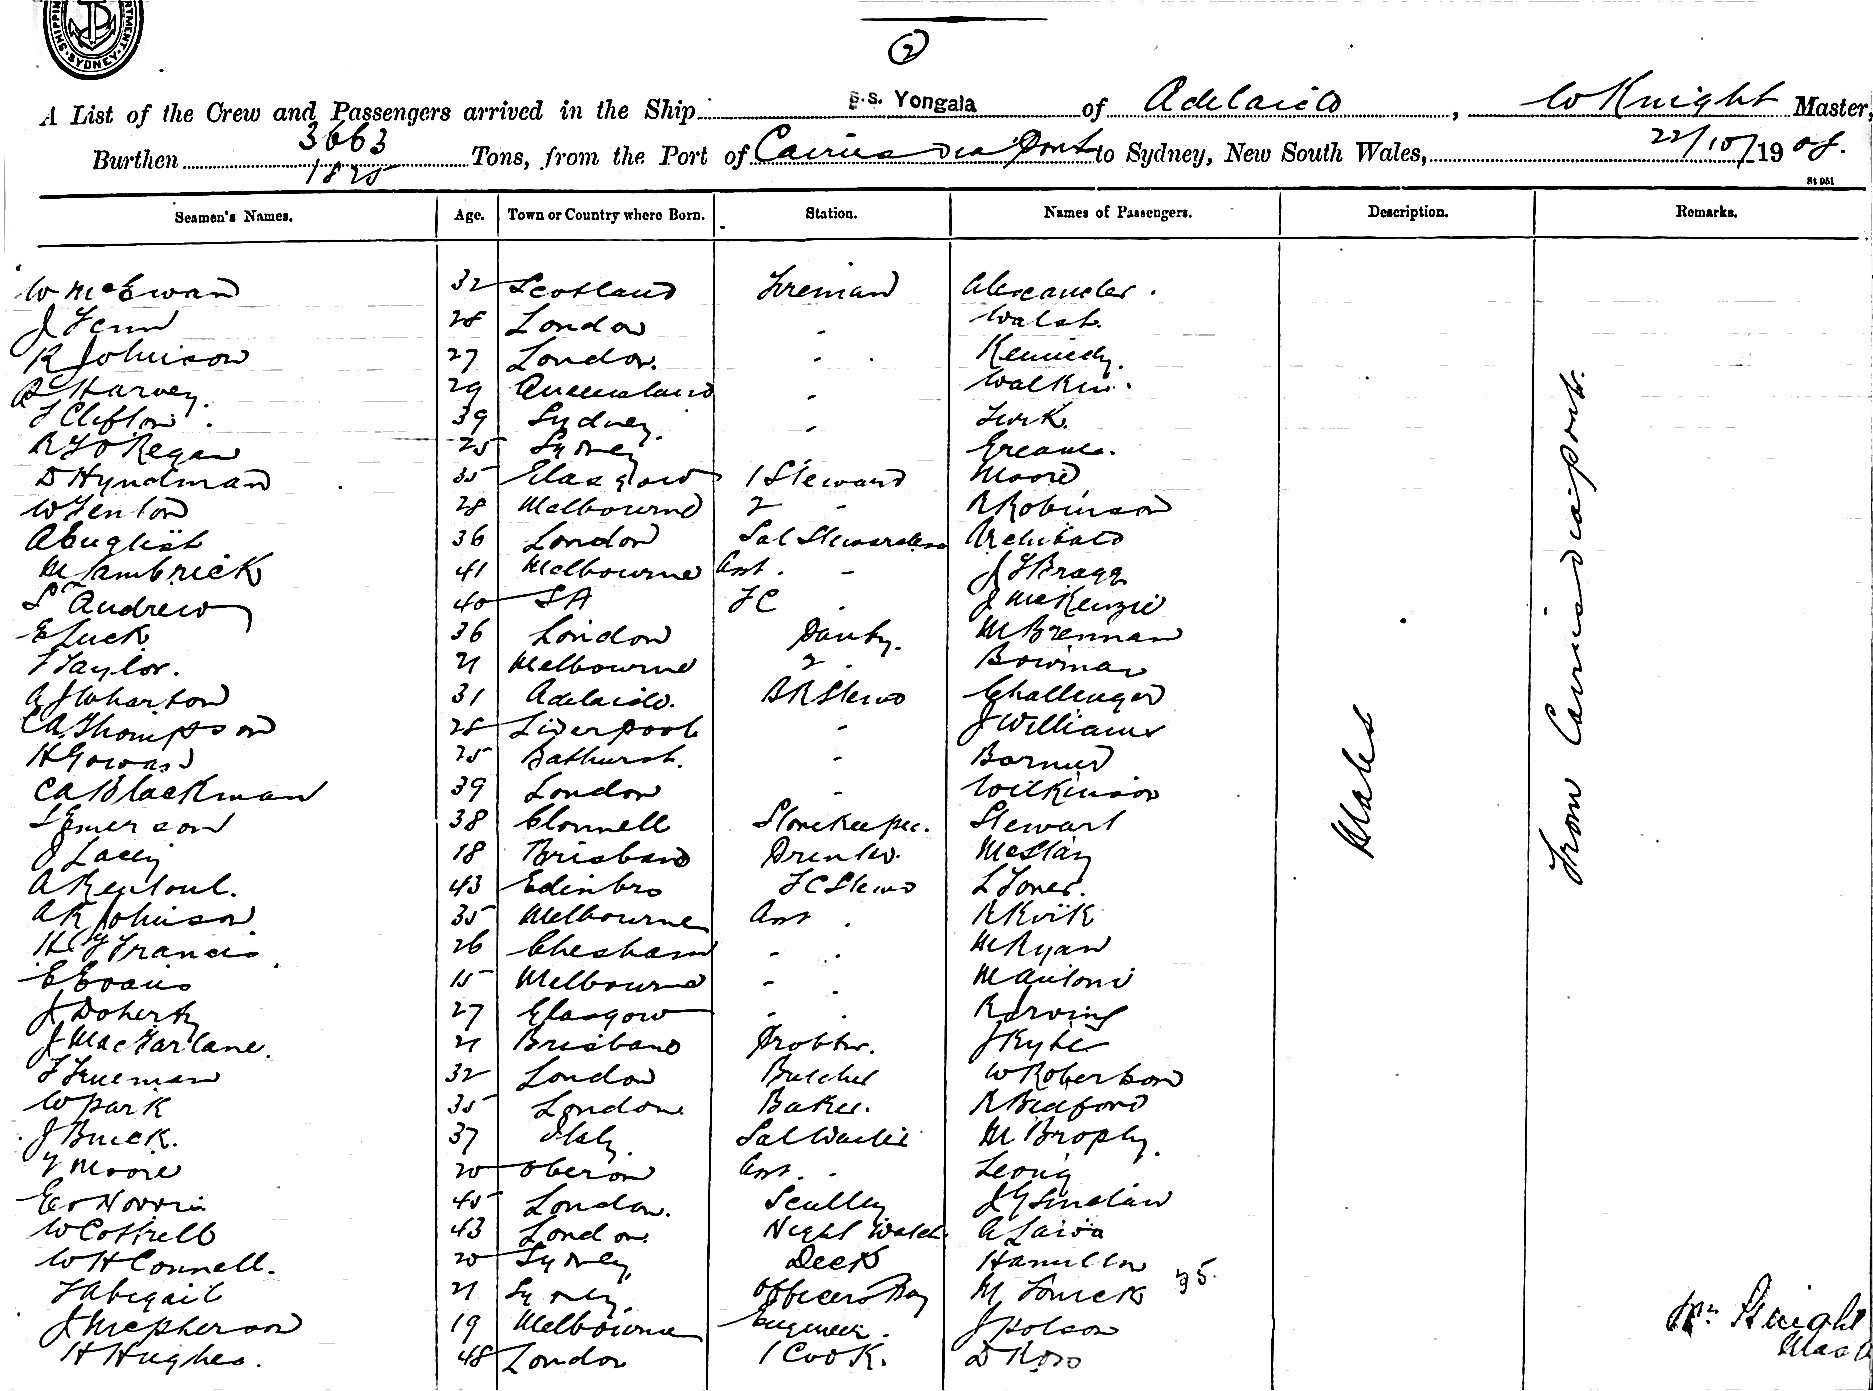 SHIPPING DEPARTMENT SYDNEY
2
A List of the Crew and Passengers arrived in the Ship s.s. Yongala of Adelaide, W Knight Master,
Burthen 3663 1825 Tons, from the Port of Cairns via ports to Sydney, New South Wales, 22/10/1908.
St 951
Seamen's Names. Age. Town or Country where Born. Station. Names of Passengers. Description. Remarks.
W McEwan 32 Scotland Fireman Alexander.
J Fenn 28 London - Walsh.
R Johnson 27 London. - Kennedy.
Harvey. 29 Queensland - Walkin.
F Clifton. 39 Sydney. - Turk.
R J O Regan 25 Sydney
D Hyndman 35 Glasgow 1 Steward Moore
W Fenton 28 Melbourne 2 - R Robinson
A English 36 London Sal Stewardess Archibald
M Lambrick 41 Melbourne Asst. - J F Bragg
S Andrew 40 SA FC - J McKenzie
E Luck 36 London Pantry. M Brennan
F Taylor. 21 Melbourne 2 - Bowman
A J Wharton 31 Adelaide. B R Stewd Challenger
C A Thompson 28 Liverpool - J Williams
H Gowans 25 Bathurst. -
C A Blackman 39 London - Wilkinson
S Emerson 38 Clonmell Storekeeper. Stewart
J Lacey 18 Brisbane
A Rentoul. 43 Edinbro FC Stewd L Jones.
A R Johnson 35 Melbourne Asst -
H Francis 26 Chesham - - M Ryan
E Evans 15 Melbourne - - M Antoni
J Doherty 27 Glasgow - - R Irving
J MacFarlane. 21 Brisbane
F Trueman 32 London Butcher W Robertson
W Park 35 London Baker. R Bedford
J Buick. 37 Italy. Sal Waiter M Brophy.
Moore 20 Oberon Asst. - Leong
Norris 45 London. Scullery J G Sinclair
W Cottrell 43 London Night Watch
W H Connell. 20 Sydney, Deck Hamilton
F Abigail 21 Sydney. Officers Boy M 35.
J McPherson 19 Melbourne Engineer. J Polson
H Hughes. 48 London 1 Cook. D Ross
Males
From Cairns via ports.
Wm Knight
Master